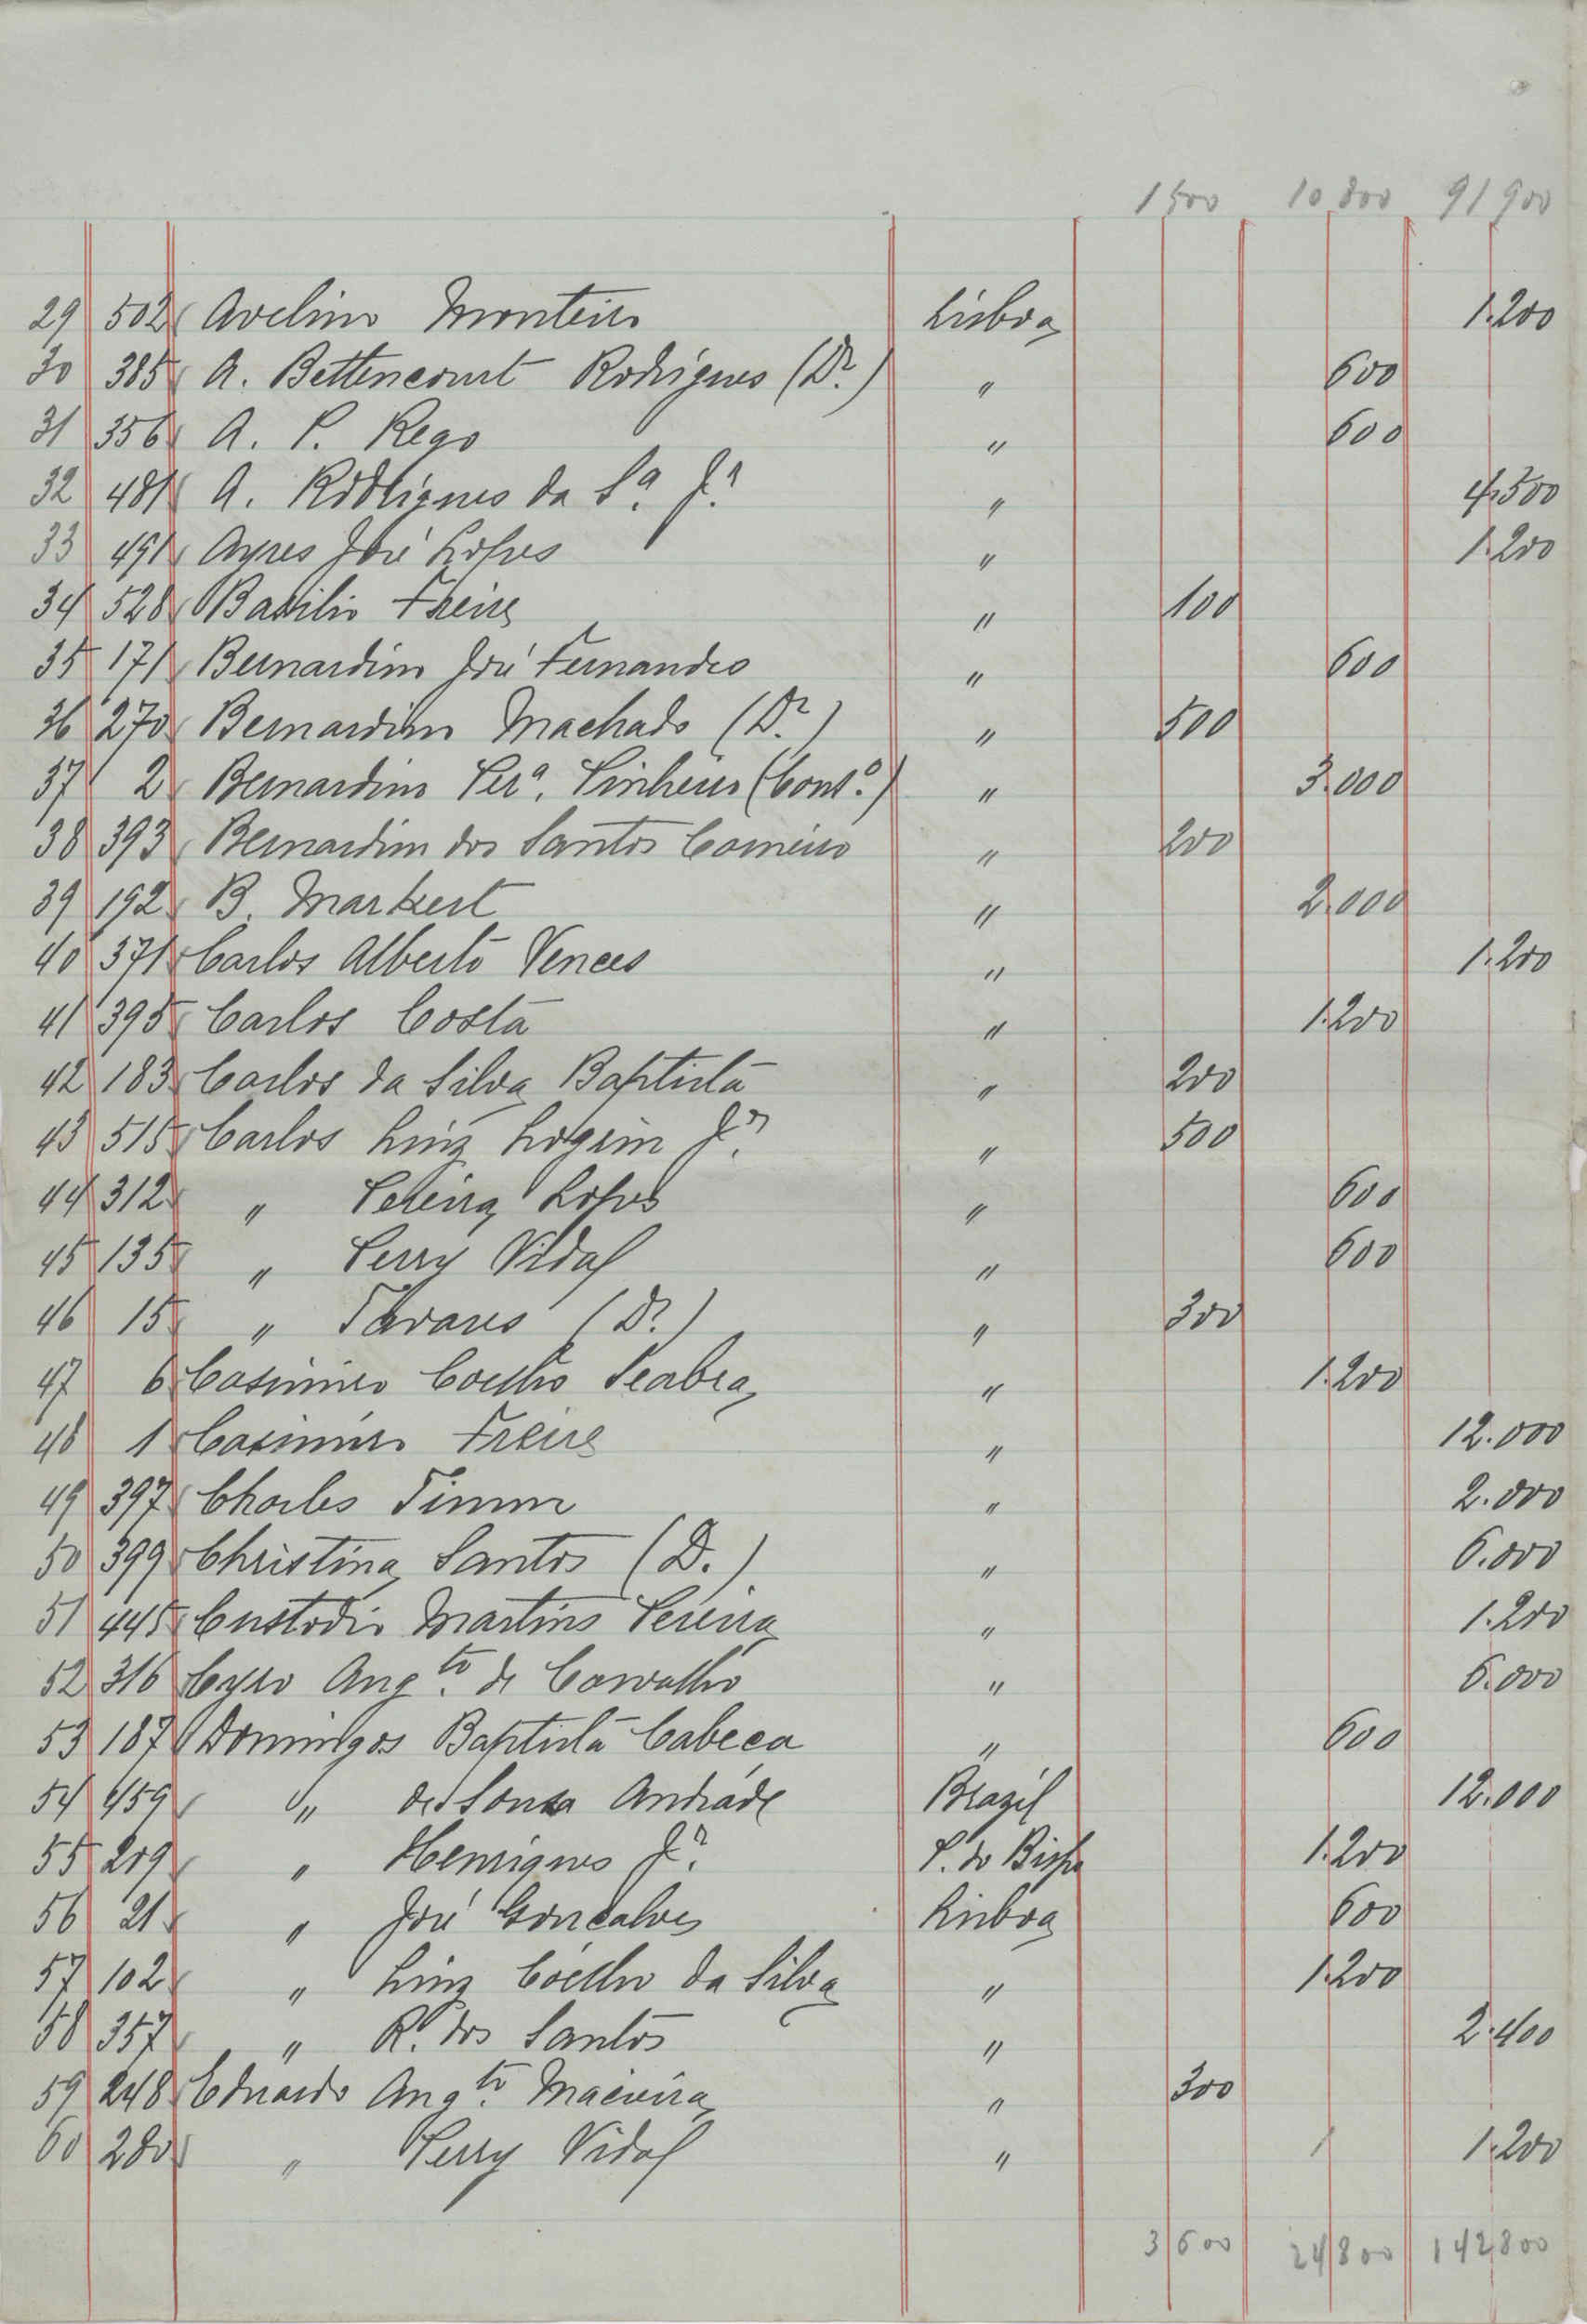 1500 10,800 91900
29 502 Avelino Monteiro Lisboa 1.200
30 385 A. Bettencourt Rodrigues (Dr.) " 600
31 356 A. P. Rego " 600
32 481 A. Rodrigues da Sa. Jr. " 4.500
33 491 Ayres José Lopes " 1.200
34 528 Basilio Freire " 100
35 171 Bernardino José Fernandes " 600
36 270 Bernardino Machado (Dr.) " 500
37 2 Bernardino Pera. Pinheiro (Conso.) " 3.000
38 393 Bernardino dos Santos Carneiro " 200
39 192 B. Markert " 2.000
40 371 Carlos Alberto Vences " 1.200
41 395 Carlos Costa " 1.200
42 183 Carlos da Silva Baptista " 200
43 515 Carlos Luiz Jr. " 500
44 312 " Pereira Lopes " 600
45 135 " Perry Vidal " 600
46 15 " Tavares (Dr.) " 300
47 6 Casimiro Coelho Seabra " 1.200
48 1 Casimiro Freire " 12.000
49 397 Charles Timm " 2.000
50 399 Christina Santos (D.) " 6.000
51 445 Custodio Martins Pereira " 1.200
52 316 Cyro Augto. de Carvalho " 6.000
53 187 Domingos Baptista Cabeça " 600
54 459 " de Sousa Andrade Brazil 12.000
55 209 " Henriques Jr. P. do Bispo 1.200
56 21 " José Gonçalves Lisboa 600
57 102 " Luiz Coelho da Silva " 1.200
58 357 " R. dos Santos " 2.400
59 248 Eduardo Augto. Macieira " 300
60 280 " Perry Vidal " 1.200
3600 24800 142800